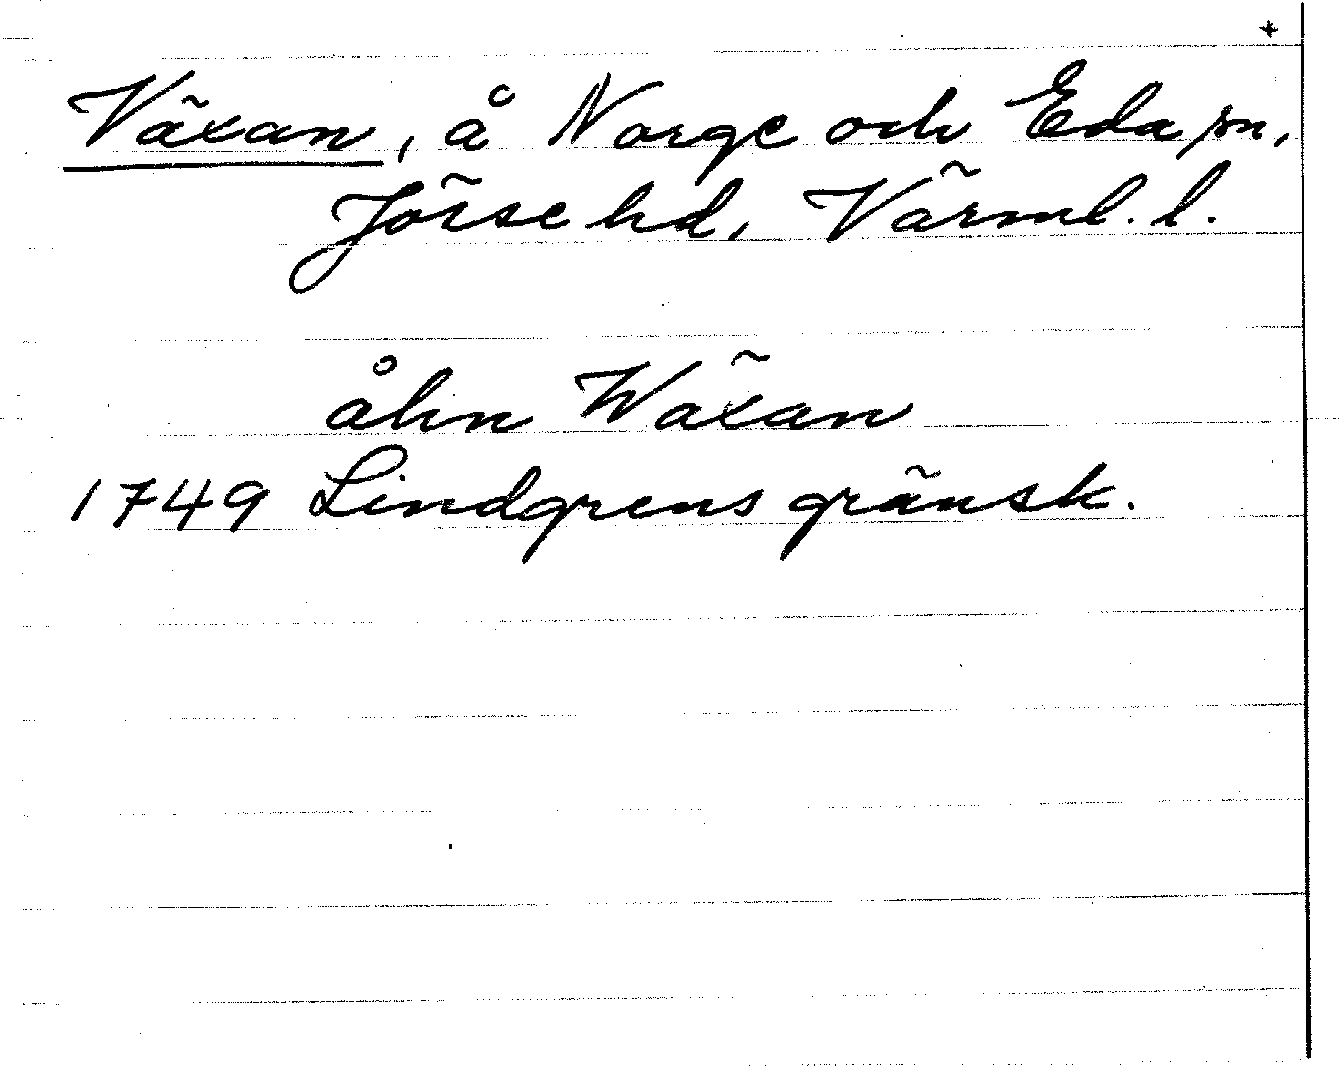 +
Växan, å Norge och Eda sn,
Jösse hd, Värml. l.
åhn Wäxan
1749 Lindgrens gränsk.